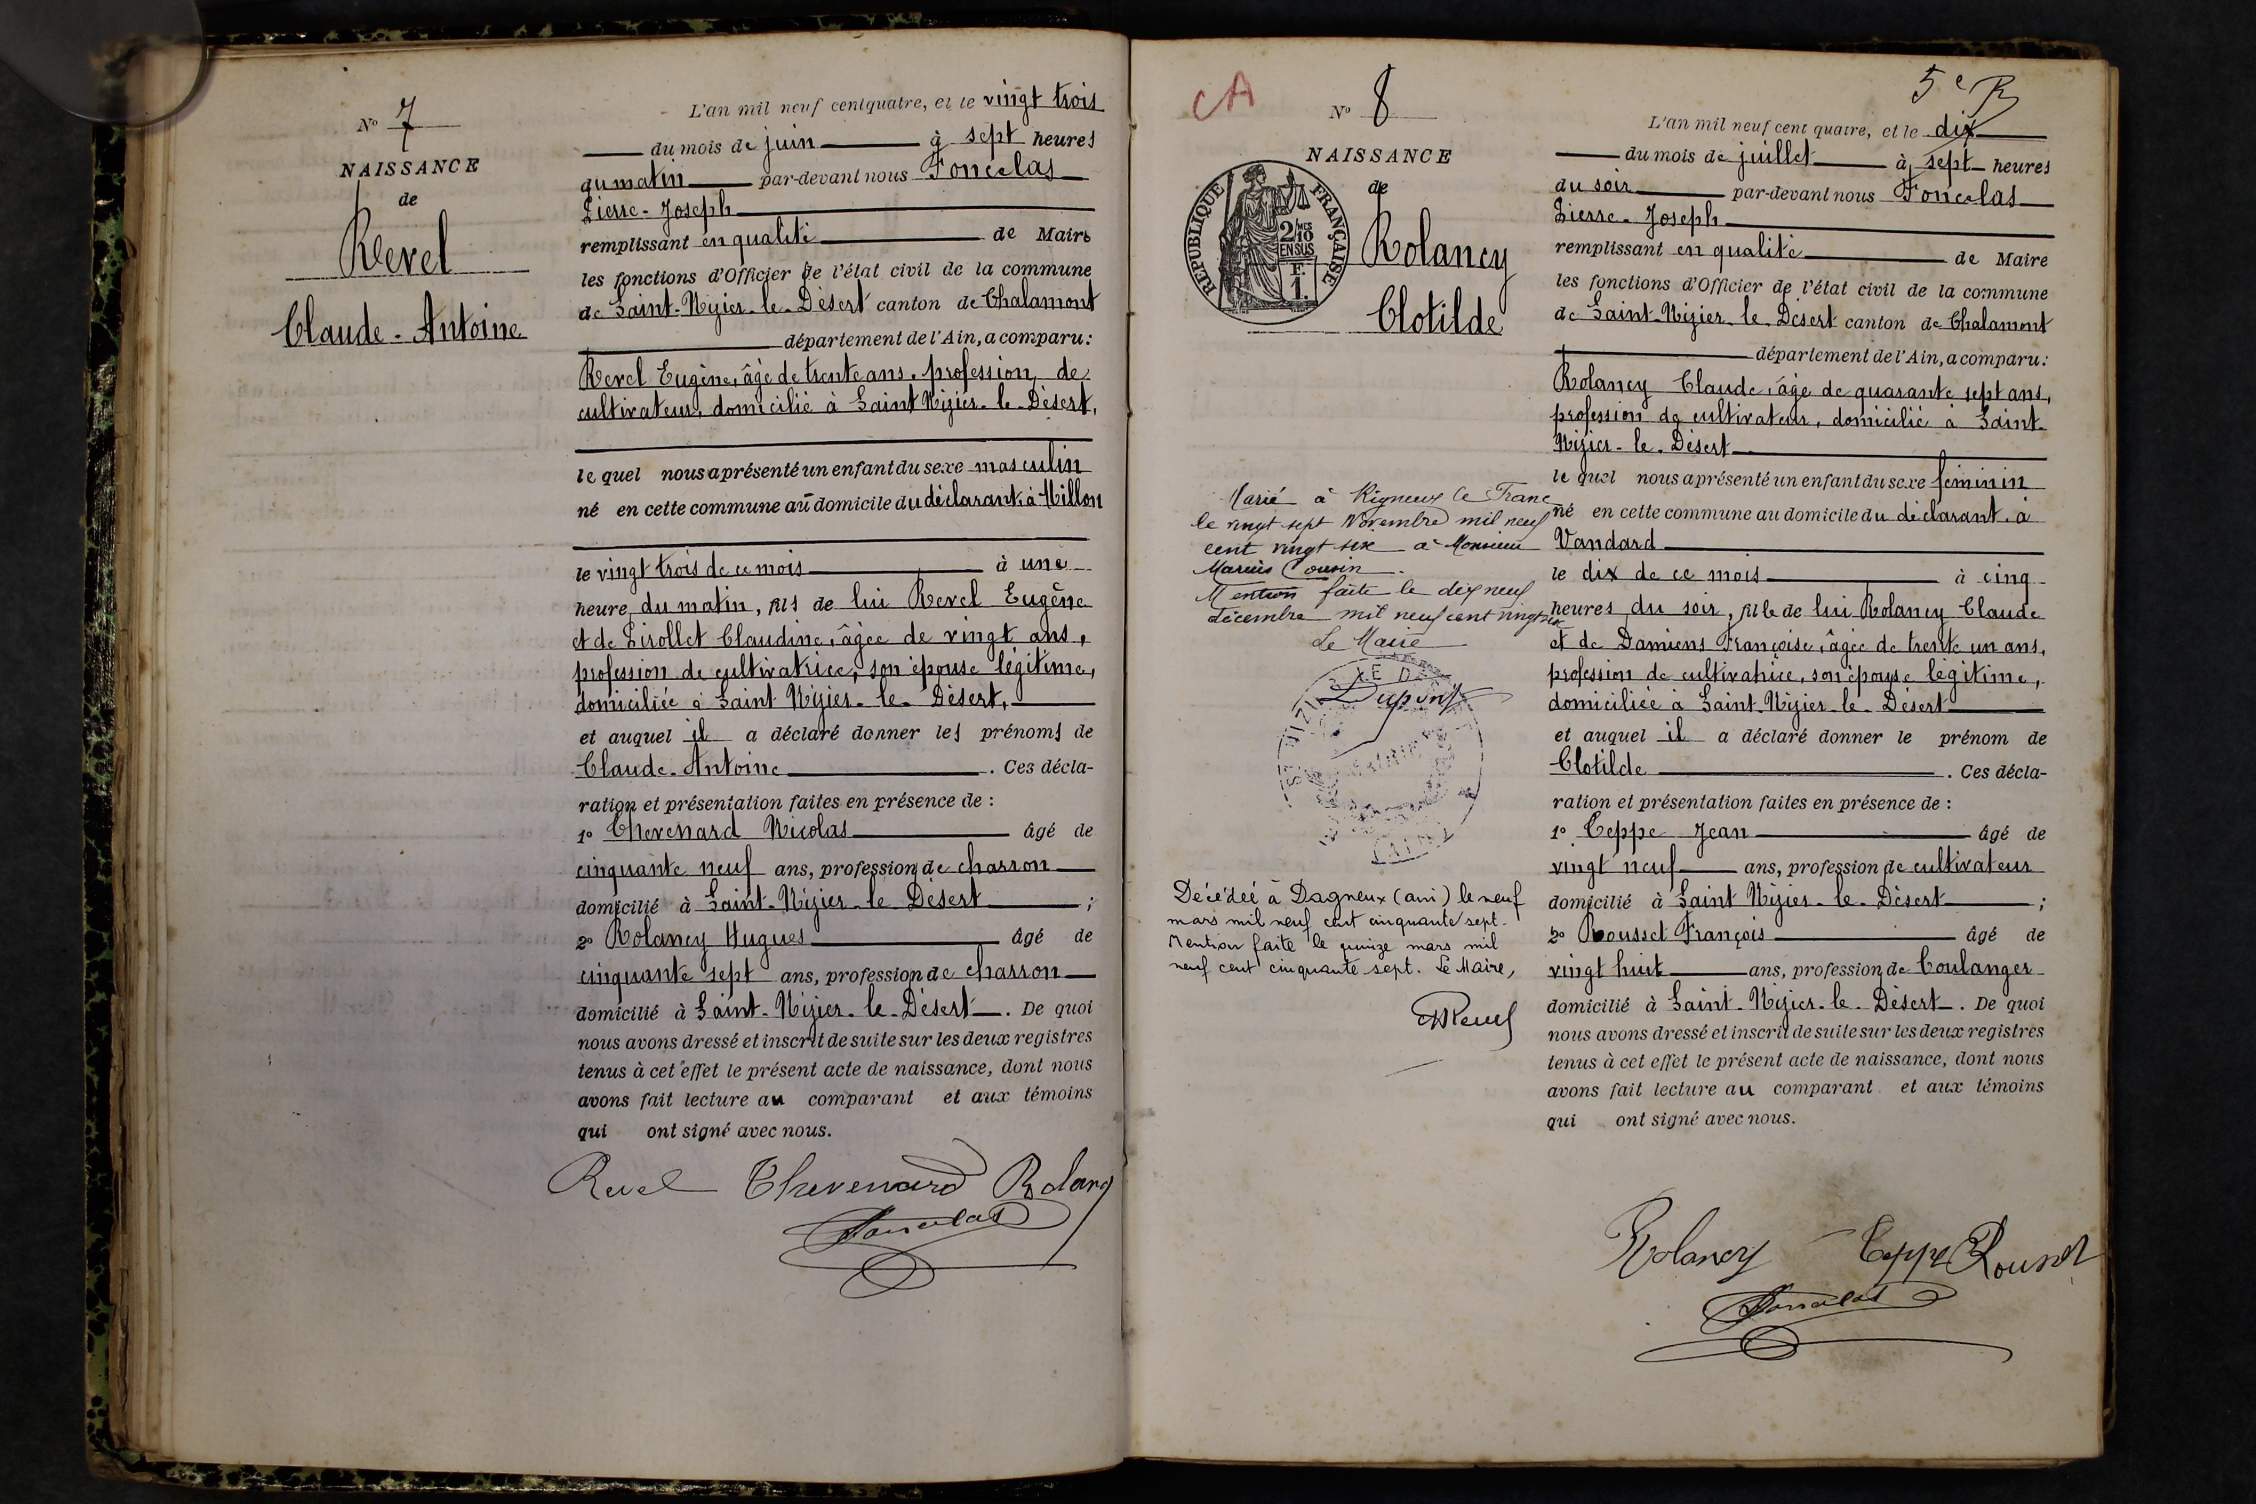 N° 7
NAISSANCE
de
Revel
Claude-Antoine
L'an mil neuf cent quatre, et le vingt trois
du mois de juin à sept heures
du matin par-devant nous Foncelas
Pierre-Joseph
remplissant en qualité de Maire
les fonctions d'Officier de l'état civil de la commune
de Saint-Nizier-le-Désert canton de Chalamont
département de l'Ain, a comparu:
Revel Eugène, âgé de trente ans, profession de
cultivateur, domicilié à Saint Nizier-le-Désert,
le quel nous a présenté un enfant du sexe masculin
né en cette commune au domicile du déclarant à Millon
le vingt trois de ce mois à une
heure du matin, fils de lui Revel Eugène
et de Pirollet Claudine, âgée de vingt ans,
profession de cultivatrice, son épouse légitime,
domiciliée à Saint Nizier-le-Désert,
et auquel il a déclaré donner les prénoms de
Claude-Antoine. Ces décla-
ration et présentation faites en présence de :
1° Thevenard Nicolas âgé de
cinquante neuf ans, profession de charron
domicilié à Saint-Nizier-le-Désert ;
2° Rolancy Hugues âgé de
cinquante sept ans, profession de charron
domicilié à Saint-Nizier-le-Désert. De quoi
nous avons dressé et inscrit de suite sur les deux registres
tenus à cet effet le présent acte de naissance, dont nous
avons fait lecture au comparant et aux témoins
qui ont signé avec nous.
Revel Thevenard Rolancy
Foncelas
CA
5e R
N° 8
NAISSANCE
de
RÉPUBLIQUE FRANÇAISE
2/10
EN SUS
F.
1.
Rolancy
Clotilde
Marié à Rigneux le Franc
le vingt sept Novembre mil neuf
cent vingt six à Monsieur
Marius Cousin.
Mention faite le dix neuf
décembre mil neuf cent vingt six
Le Maire
Dupont
Décédée à Dagneux (ain) le neuf
mars mil neuf cent cinquante sept.
Mention faite le quinze mars mil
neuf cent cinquante sept. Le Maire,
L'an mil neuf cent quatre, et le dix
du mois de juillet à sept heures
du soir par-devant nous Foncelas
Pierre-Joseph
remplissant en qualité de Maire
les fonctions d'Officier de l'état civil de la commune
de Saint-Nizier-le-Désert canton de Chalamont
département de l'Ain, a comparu:
Rolancy Claude, âgé de quarante sept ans,
profession de cultivateur, domicilié à Saint-
Nizier-le-Désert
le quel nous a présenté un enfant du sexe féminin
né en cette commune au domicile du déclarant à
Vandard
le dix de ce mois à cinq
heures du soir, fille de lui Rolancy Claude
et de Damiens Françoise, âgée de trente un ans,
profession de cultivatrice, son épouse légitime,
domiciliée à Saint-Nizier-le-Désert
et auquel il a déclaré donner le prénom de
Clotilde. Ces décla-
ration et présentation faites en présence de :
1° Teppe Jean âgé de
vingt neuf ans, profession de cultivateur
domicilié à Saint Nizier-le-Désert ;
2° Rousset François âgé de
vingt huit ans, profession de boulanger
domicilié à Saint-Nizier-le-Désert. De quoi
nous avons dressé et inscrit de suite sur les deux registres
tenus à cet effet le présent acte de naissance, dont nous
avons fait lecture au comparant et aux témoins
qui ont signé avec nous.
Rolancy Teppe Rousset
Foncelas